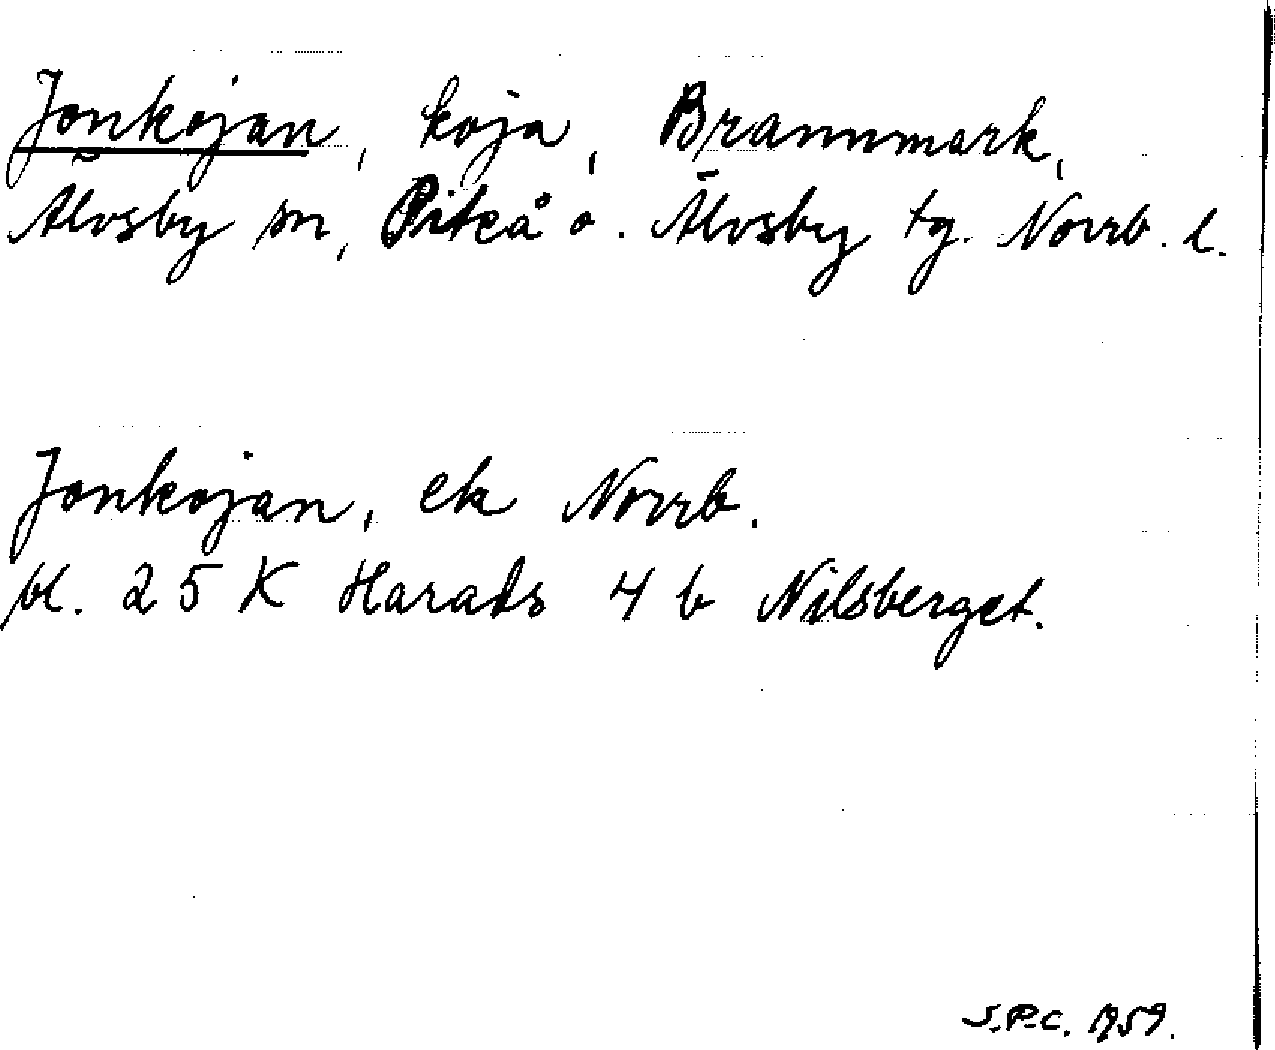 Jonkojan, koja, Brannmark,
Älvsby sn, Piteå o. Älvsby tg. Norrb. l.
Jonkojan, ek Norrb.
bl. 25 K Harads 4 b Nilsberget.
S.P.C. 1959.